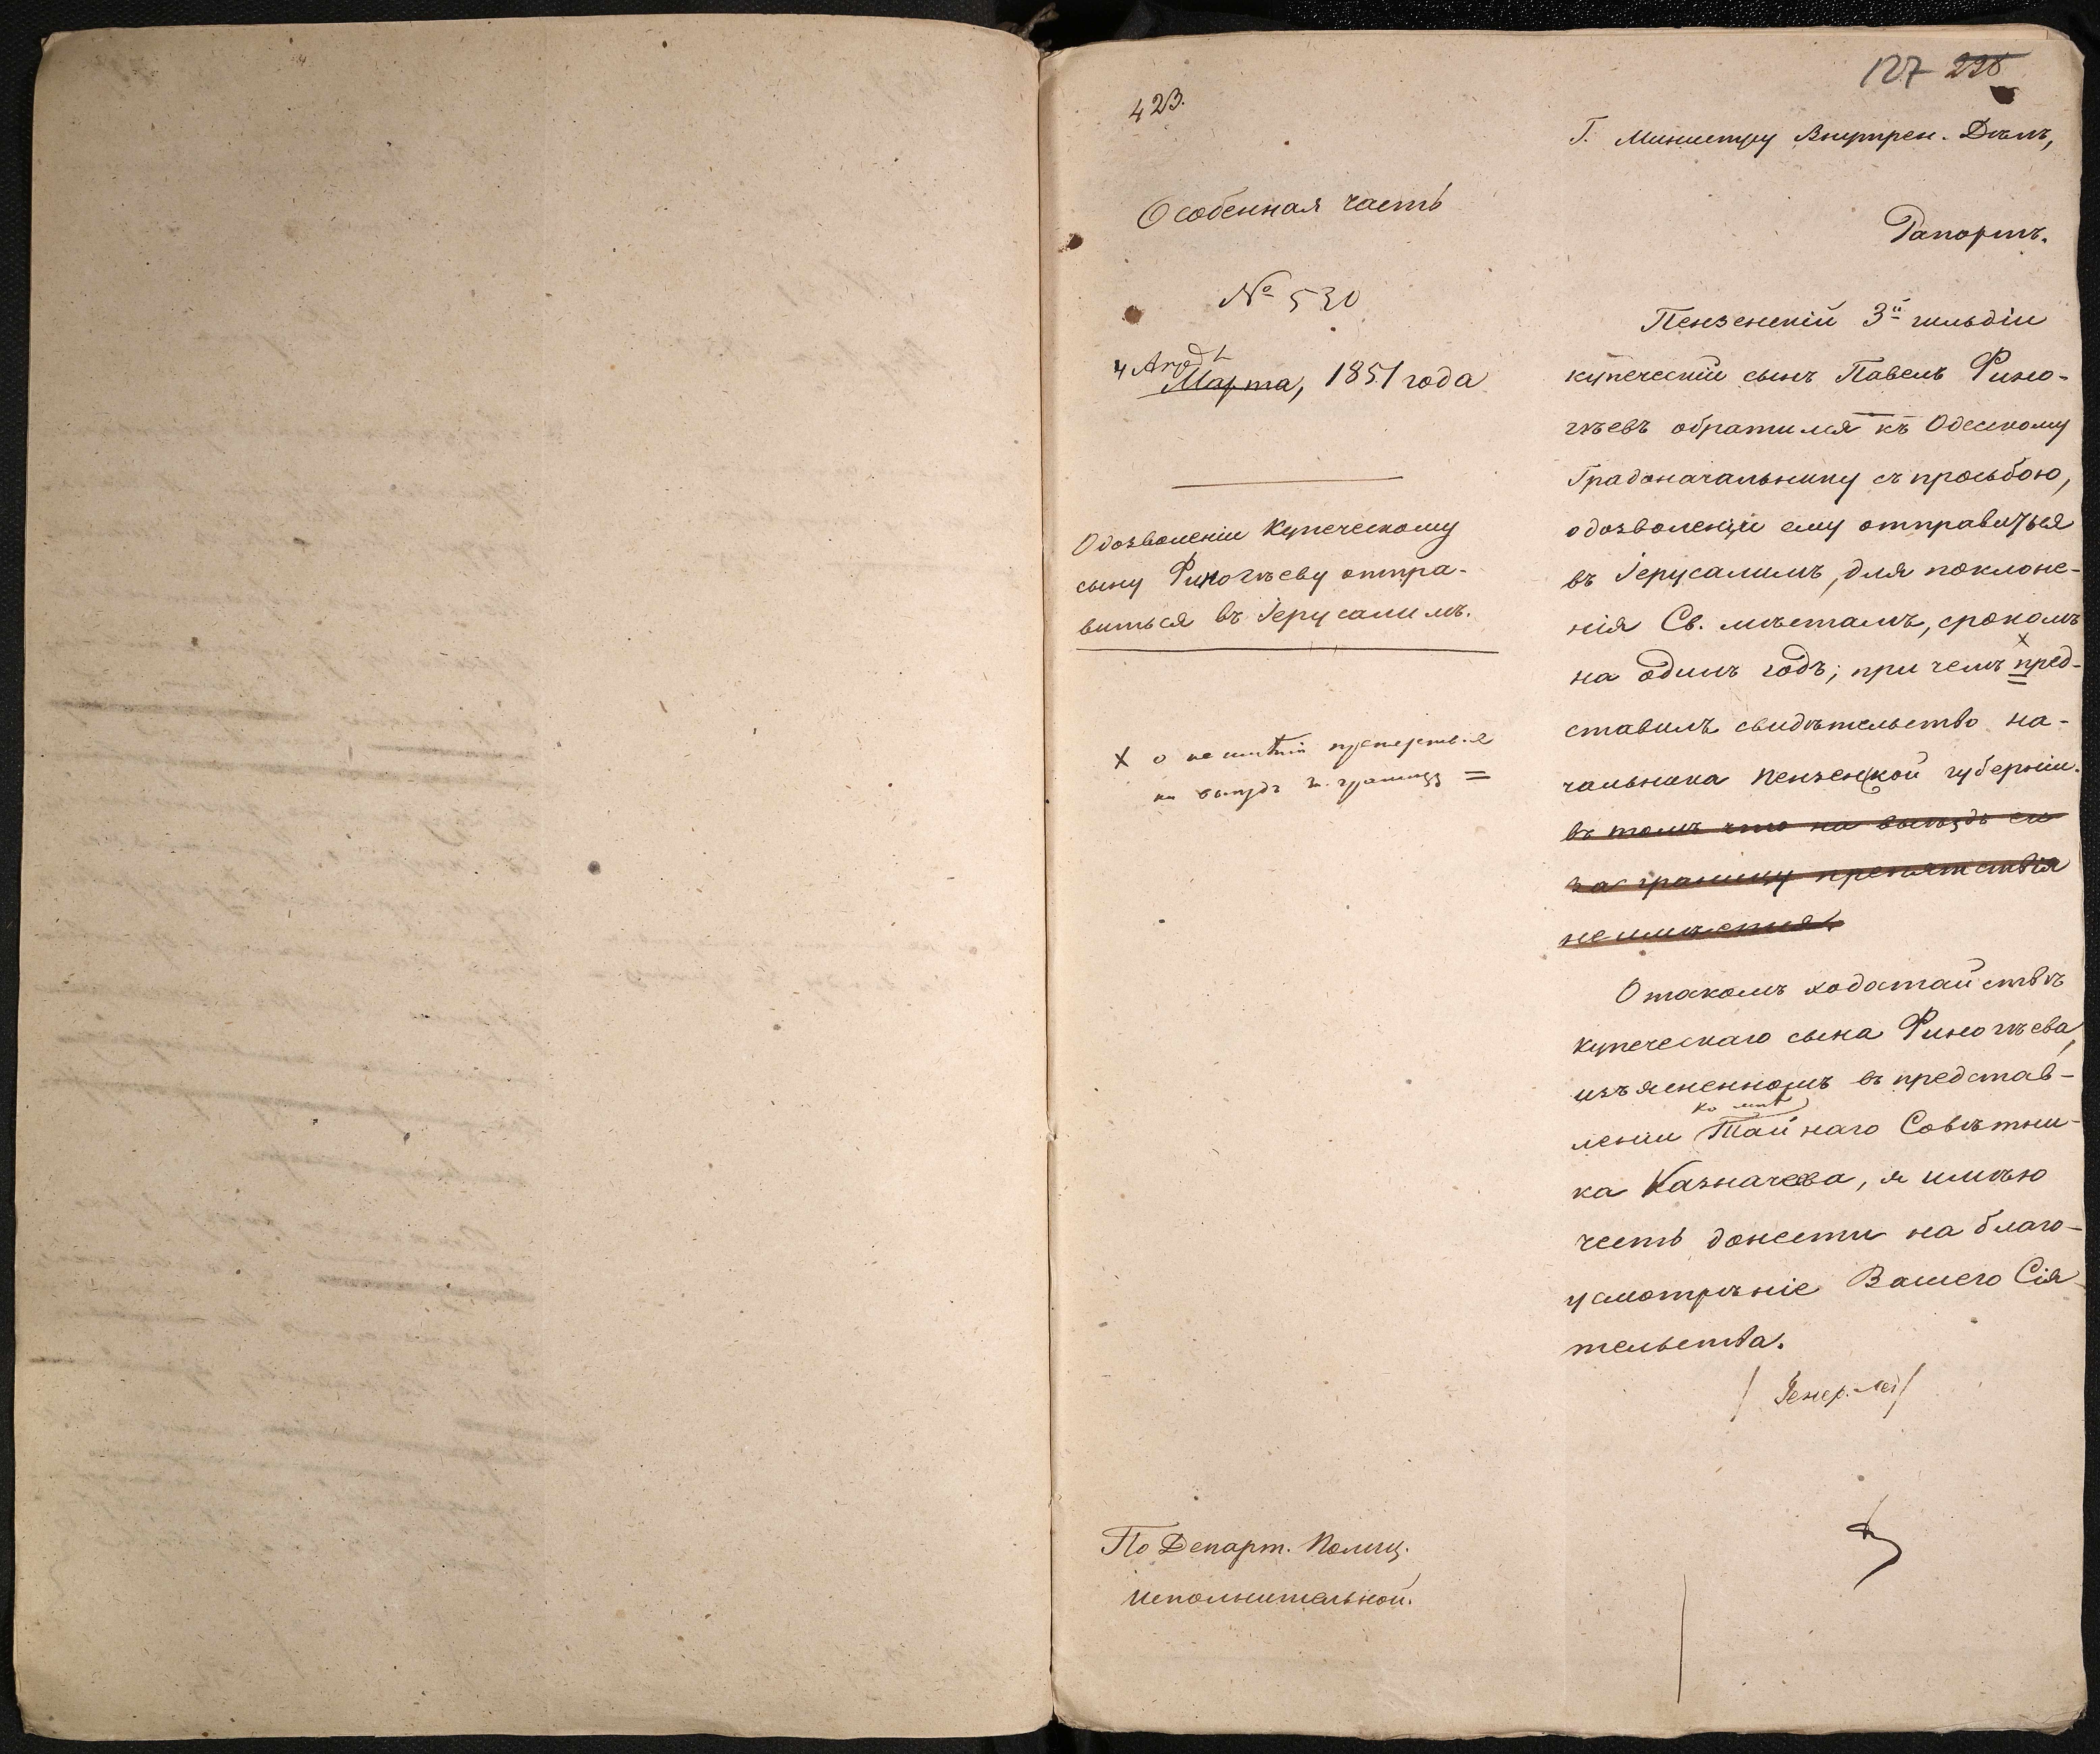 127 228
423.
Особенная часть
№ 530
4 Апр.
Марта, 1851 года
О дозволеніи Купеческому
сыну Финогѣеву отпра-
виться въ Іерусалимъ.
X о неимѣніи препятствія
на выѣздъ за границу =
По Департ. Полиц.
Исполнительной.
Г. Министру Внутрен. Дѣлъ,
Рапортъ.
Пензенскій 3й гильдіи
купеческій сынъ Павелъ Фино-
гѣевъ обратился къ Одесскому
Градоначальнику съ просьбою,
о дозволеніи ему отправиться
въ Іерусалимъ, для поклоне-
нія Св. мѣстамъ, срокомъ
на одинъ годъ; при чемъ X пред-
ставилъ свидѣтельство на-
чальника Пензенской губерніи.
въ томъ что на выѣздъ его
за границу препятствія
не имѣется.
О такомъ ходатайствѣ
купеческаго сына Финогѣева,
изъясненномъ въ представ-
ко мнѣ
леніи Тайнаго Совѣтни-
ка Казначеева, я имѣю
честь донести на благо-
усмотрѣніе Вашего Сія-
тельства.
/ Генер. Лей /